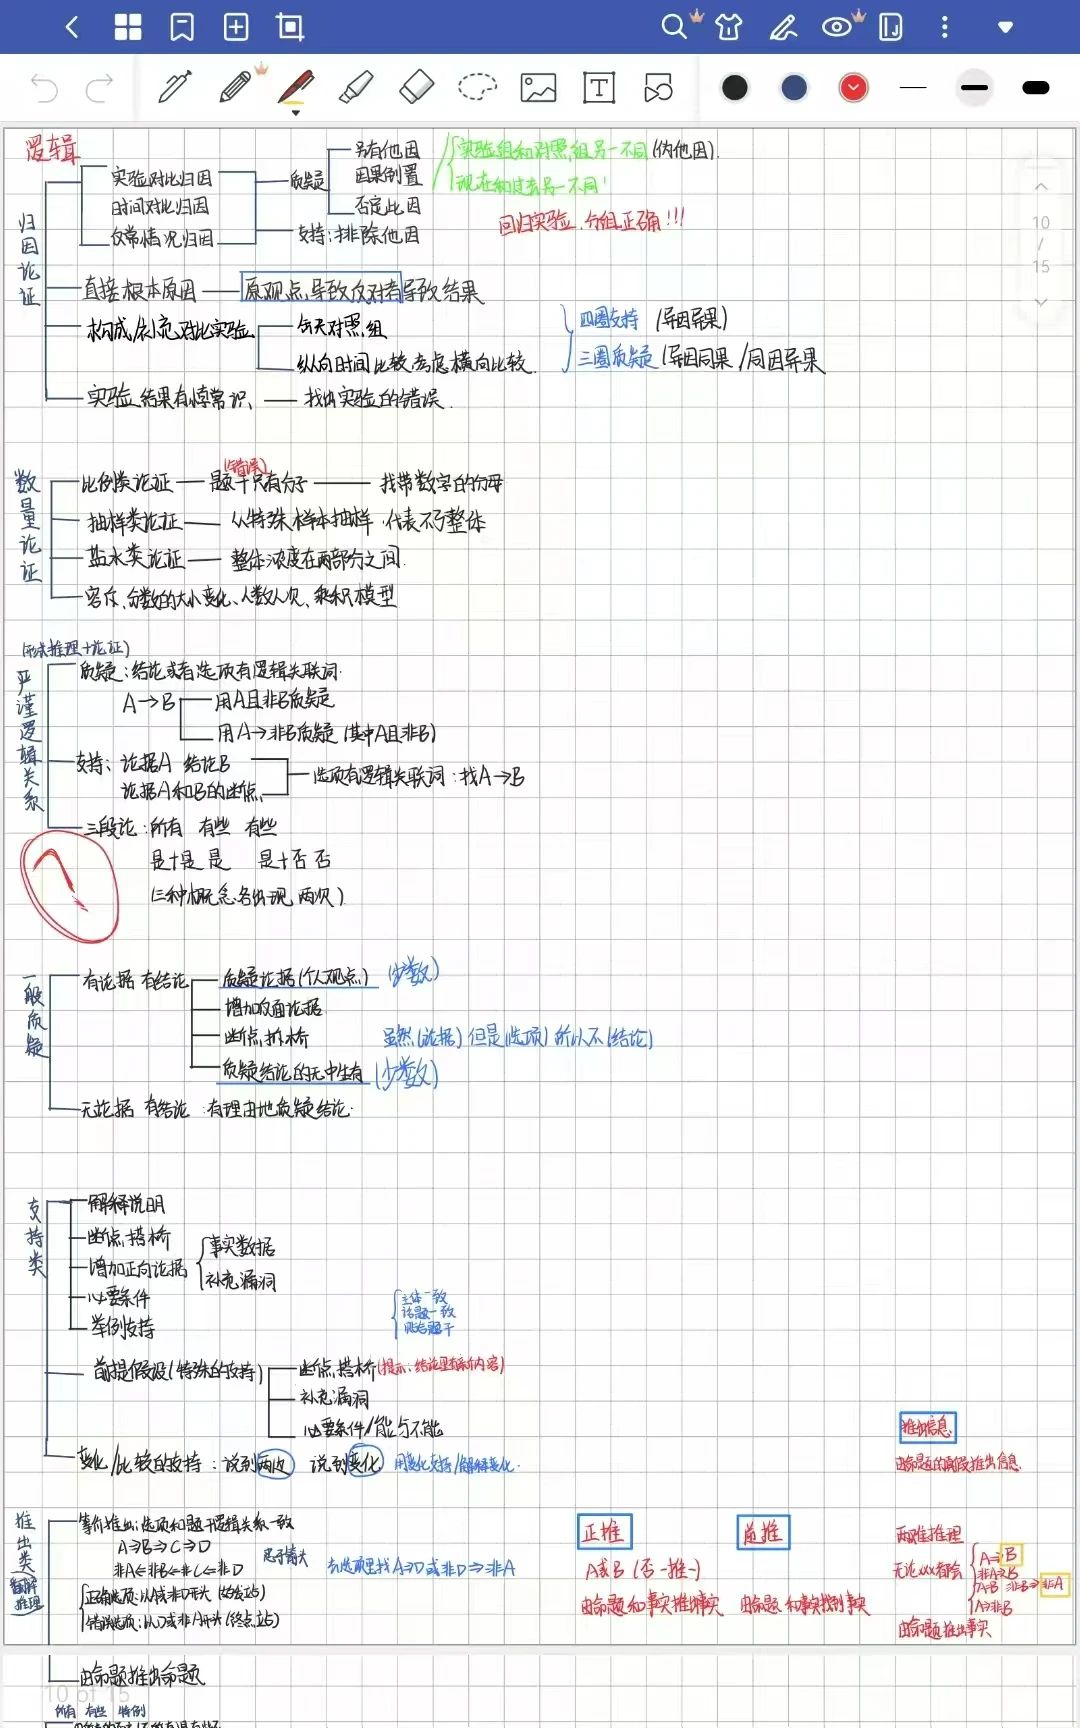 逻辑
归因论证
实验对比归因
时间对比归因
仅常情况归因
质疑
另有他因
因果倒置
否定此因
支持:排除他因
实验组和对照组另一不同(伪他因).
现在和过去另一不同!
回归实验,分组正确!!!
直接根本原因
原观点导致反对者导致结果
构成/补充对比实验
有无对照组
纵向时间比较,考虑横向比较
四圈支持 (异因异果)
三圈质疑 (异因同果/同因异果
实验结果有悖常识、
找出实验的错误.
数量论证
比例类论证
(错误)
题干只有分子
找带数字的分母
抽样类论证
从特殊样本抽样,代表不了整体
盐水类论证
整体浓度在两部分之间.
容斥、分数的大小变化、人数人次、乘积模型
(形式推理+论证)
严谨逻辑关系
质疑:结论或者选项有逻辑关联词.
A→B
用A且非B质疑
用A→非B质疑 (其中A且非B)
支持: 论据A 结论B
论据A和B的断点
选项有逻辑关联词:找A→B
三段论:所有 有些 有些
是+是 是 是+否 否
(三种概念各出现两次)
一般质疑
有论据 有结论
质疑论据(个人观点) (少数)
增加反面论据
断点拆桥
虽然(论据)但是(选项)所以不(结论)
质疑结论的无中生有 (少数)
无论据 有结论 :有理由地质疑结论.
支持类
解释说明
断点搭桥
增加正向论据
事实数据
补充漏洞
必要条件
举例支持
主体一致
话题一致
贴合题干
前提假设(特殊的支持)
断点搭桥(提示:结论里有新内容)
补充漏洞
必要条件/能与不能
变化/比较的支持:说到两边 说到变化 用变化支持/解释变化.
推出信息
由命题的真假推出信息.
推出类
翻译推理
等价推出:选项和题干逻辑关系一致
A⇒B⇒C⇒D
非A⇐非B⇐非C⇐非D
去选项里找A⇒D或非D⇒非A
正确选项:以A或非D开头 (始发站)
错误选项:以D或非A开头 (终点站)
正推
A或B (否一推一)
由命题和事实推出事实
由命题和事实找到事实
两难推理
无论xx都会
A⇒B
非A⇒B
A⇒B 非B⇒非A
A⇒非B
由命题推出事实
由命题推出命题
所有 有些 特例
10
/
15
10 of 15